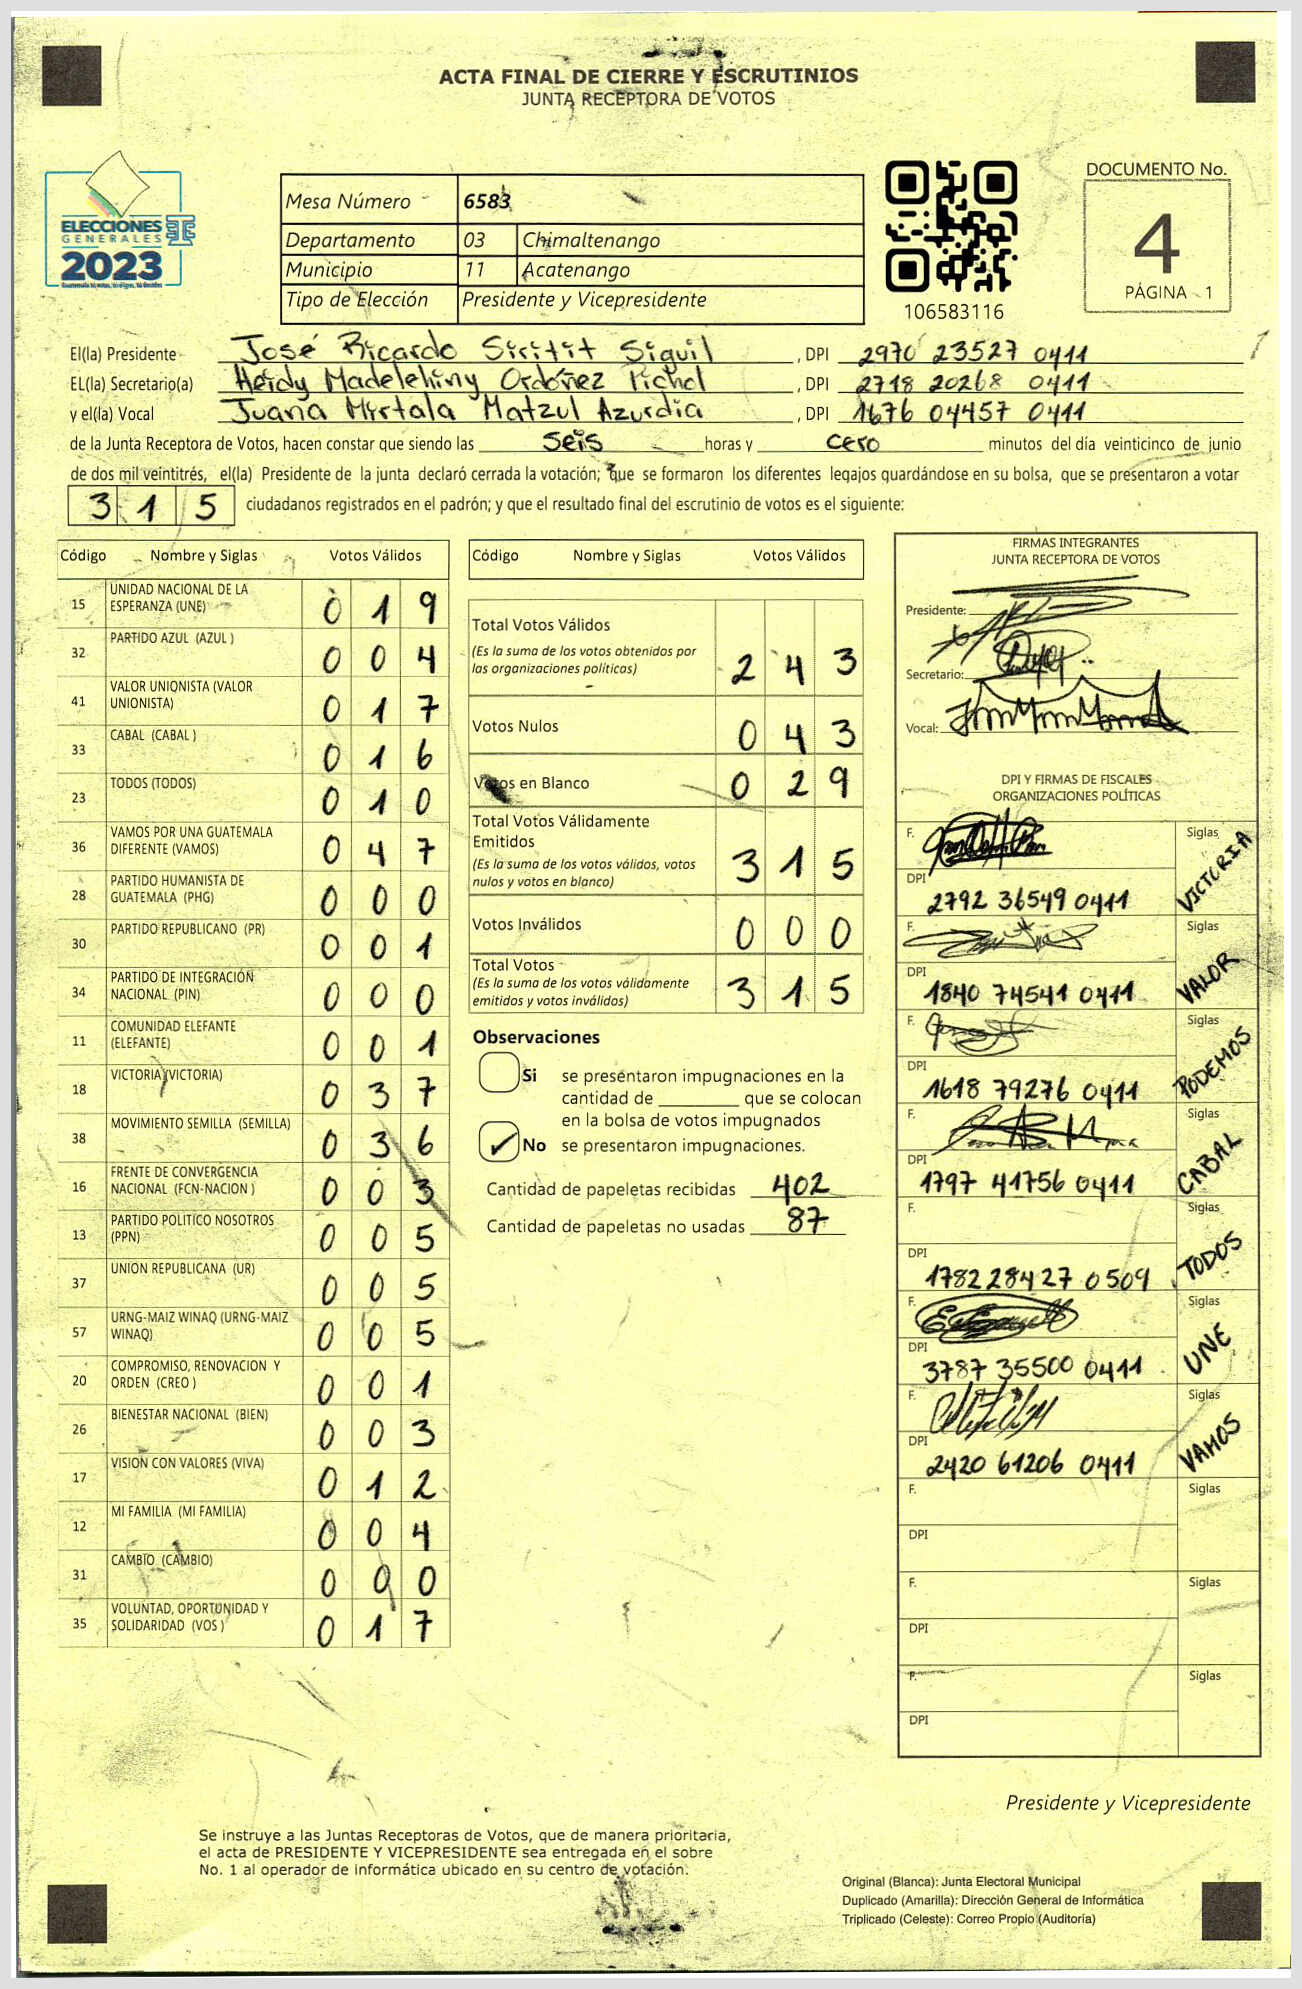 ACTA FINAL DE CIERRE Y ESCRUTINIOS
JUNTA RECEPTORA DE VOTOS
ELECCIONES
GENERALES
2023
Mesa Número 6583
Departamento 03 Chimaltenango
Municipio 11 Acatenango
Tipo de Elección Presidente y Vicepresidente
106583116
DOCUMENTO No.
4
PÁGINA 1
El(la) Presidente José Ricardo Siritit Siquil, DPI 2970 23527 0411
EL(la) Secretario(a) Heidy Madelehiny Ordóñez Pichol, DPI 2718 20268 0411
y el(la) Vocal Juana Mirtala Matzul Azurdia, DPI 1676 04457 0411
de la Junta Receptora de Votos, hacen constar que siendo las seis horas y cero minutos del día veinticinco de junio
de dos mil veintitrés, el(la) Presidente de la junta declaró cerrada la votación; que se formaron los diferentes legajos guardándose en su bolsa, que se presentaron a votar
315 ciudadanos registrados en el padrón; y que el resultado final del escrutinio de votos es el siguiente:
Código Nombre y Siglas Votos Válidos
15 UNIDAD NACIONAL DE LA ESPERANZA (UNE) 0 1 9
32 PARTIDO AZUL (AZUL ) 0 0 4
41 VALOR UNIONISTA (VALOR UNIONISTA) 0 1 7
33 CABAL (CABAL ) 0 1 6
23 TODOS (TODOS) 0 1 0
36 VAMOS POR UNA GUATEMALA DIFERENTE (VAMOS) 0 4 7
28 PARTIDO HUMANISTA DE GUATEMALA (PHG) 0 0 0
30 PARTIDO REPUBLICANO (PR) 0 0 1
34 PARTIDO DE INTEGRACIÓN NACIONAL (PIN) 0 0 0
11 COMUNIDAD ELEFANTE (ELEFANTE) 0 0 1
18 VICTORIA (VICTORIA) 0 3 7
38 MOVIMIENTO SEMILLA (SEMILLA) 0 3 6
16 FRENTE DE CONVERGENCIA NACIONAL (FCN-NACION ) 0 0 3
13 PARTIDO POLITICO NOSOTROS (PPN) 0 0 5
37 UNION REPUBLICANA (UR) 0 0 5
57 URNG-MAIZ WINAQ (URNG-MAIZ WINAQ) 0 0 5
20 COMPROMISO, RENOVACION Y ORDEN (CREO ) 0 0 1
26 BIENESTAR NACIONAL (BIEN) 0 0 3
17 VISION CON VALORES (VIVA) 0 1 2
12 MI FAMILIA (MI FAMILIA) 0 0 4
31 CAMBIO (CAMBIO) 0 0 0
35 VOLUNTAD, OPORTUNIDAD Y SOLIDARIDAD (VOS ) 0 1 7
Código Nombre y Siglas Votos Válidos
Total Votos Válidos 2 4 3
(Es la suma de los votos obtenidos por
las organizaciones políticas)
Votos Nulos 0 4 3
Votos en Blanco 0 2 9
Total Votos Válidamente
Emitidos 3 1 5
(Es la suma de los votos válidos, votos
nulos y votos en blanco)
Votos Inválidos 0 0 0
Total Votos 3 1 5
(Es la suma de los votos válidamente
emitidos y votos inválidos)
Observaciones
Si se presentaron impugnaciones en la
cantidad de que se colocan
en la bolsa de votos impugnados
✓ No se presentaron impugnaciones.
Cantidad de papeletas recibidas 402
Cantidad de papeletas no usadas 87
FIRMAS INTEGRANTES
JUNTA RECEPTORA DE VOTOS
Presidente:
Secretario:
Vocal:
DPI Y FIRMAS DE FISCALES
ORGANIZACIONES POLÍTICAS
F. Siglas VICTORIA
DPI 2792 36549 0411
F. Siglas VALOR
DPI 1840 74541 0411
F. Siglas PODEMOS
DPI 1618 79276 0411
F. Siglas CABAL
DPI 1797 41756 0411
F. Siglas TODOS
DPI 1782 28427 0509
F. Siglas UNE
DPI 3787 35500 0411
F. Siglas VAMOS
DPI 2420 61206 0411
F. Siglas
DPI
F. Siglas
DPI
F. Siglas
DPI
Presidente y Vicepresidente
Se instruye a las Juntas Receptoras de Votos, que de manera prioritaria,
el acta de PRESIDENTE Y VICEPRESIDENTE sea entregada en el sobre
No. 1 al operador de informática ubicado en su centro de votación.
Original (Blanca): Junta Electoral Municipal
Duplicado (Amarilla): Dirección General de Informática
Triplicado (Celeste): Correo Propio (Auditoría)